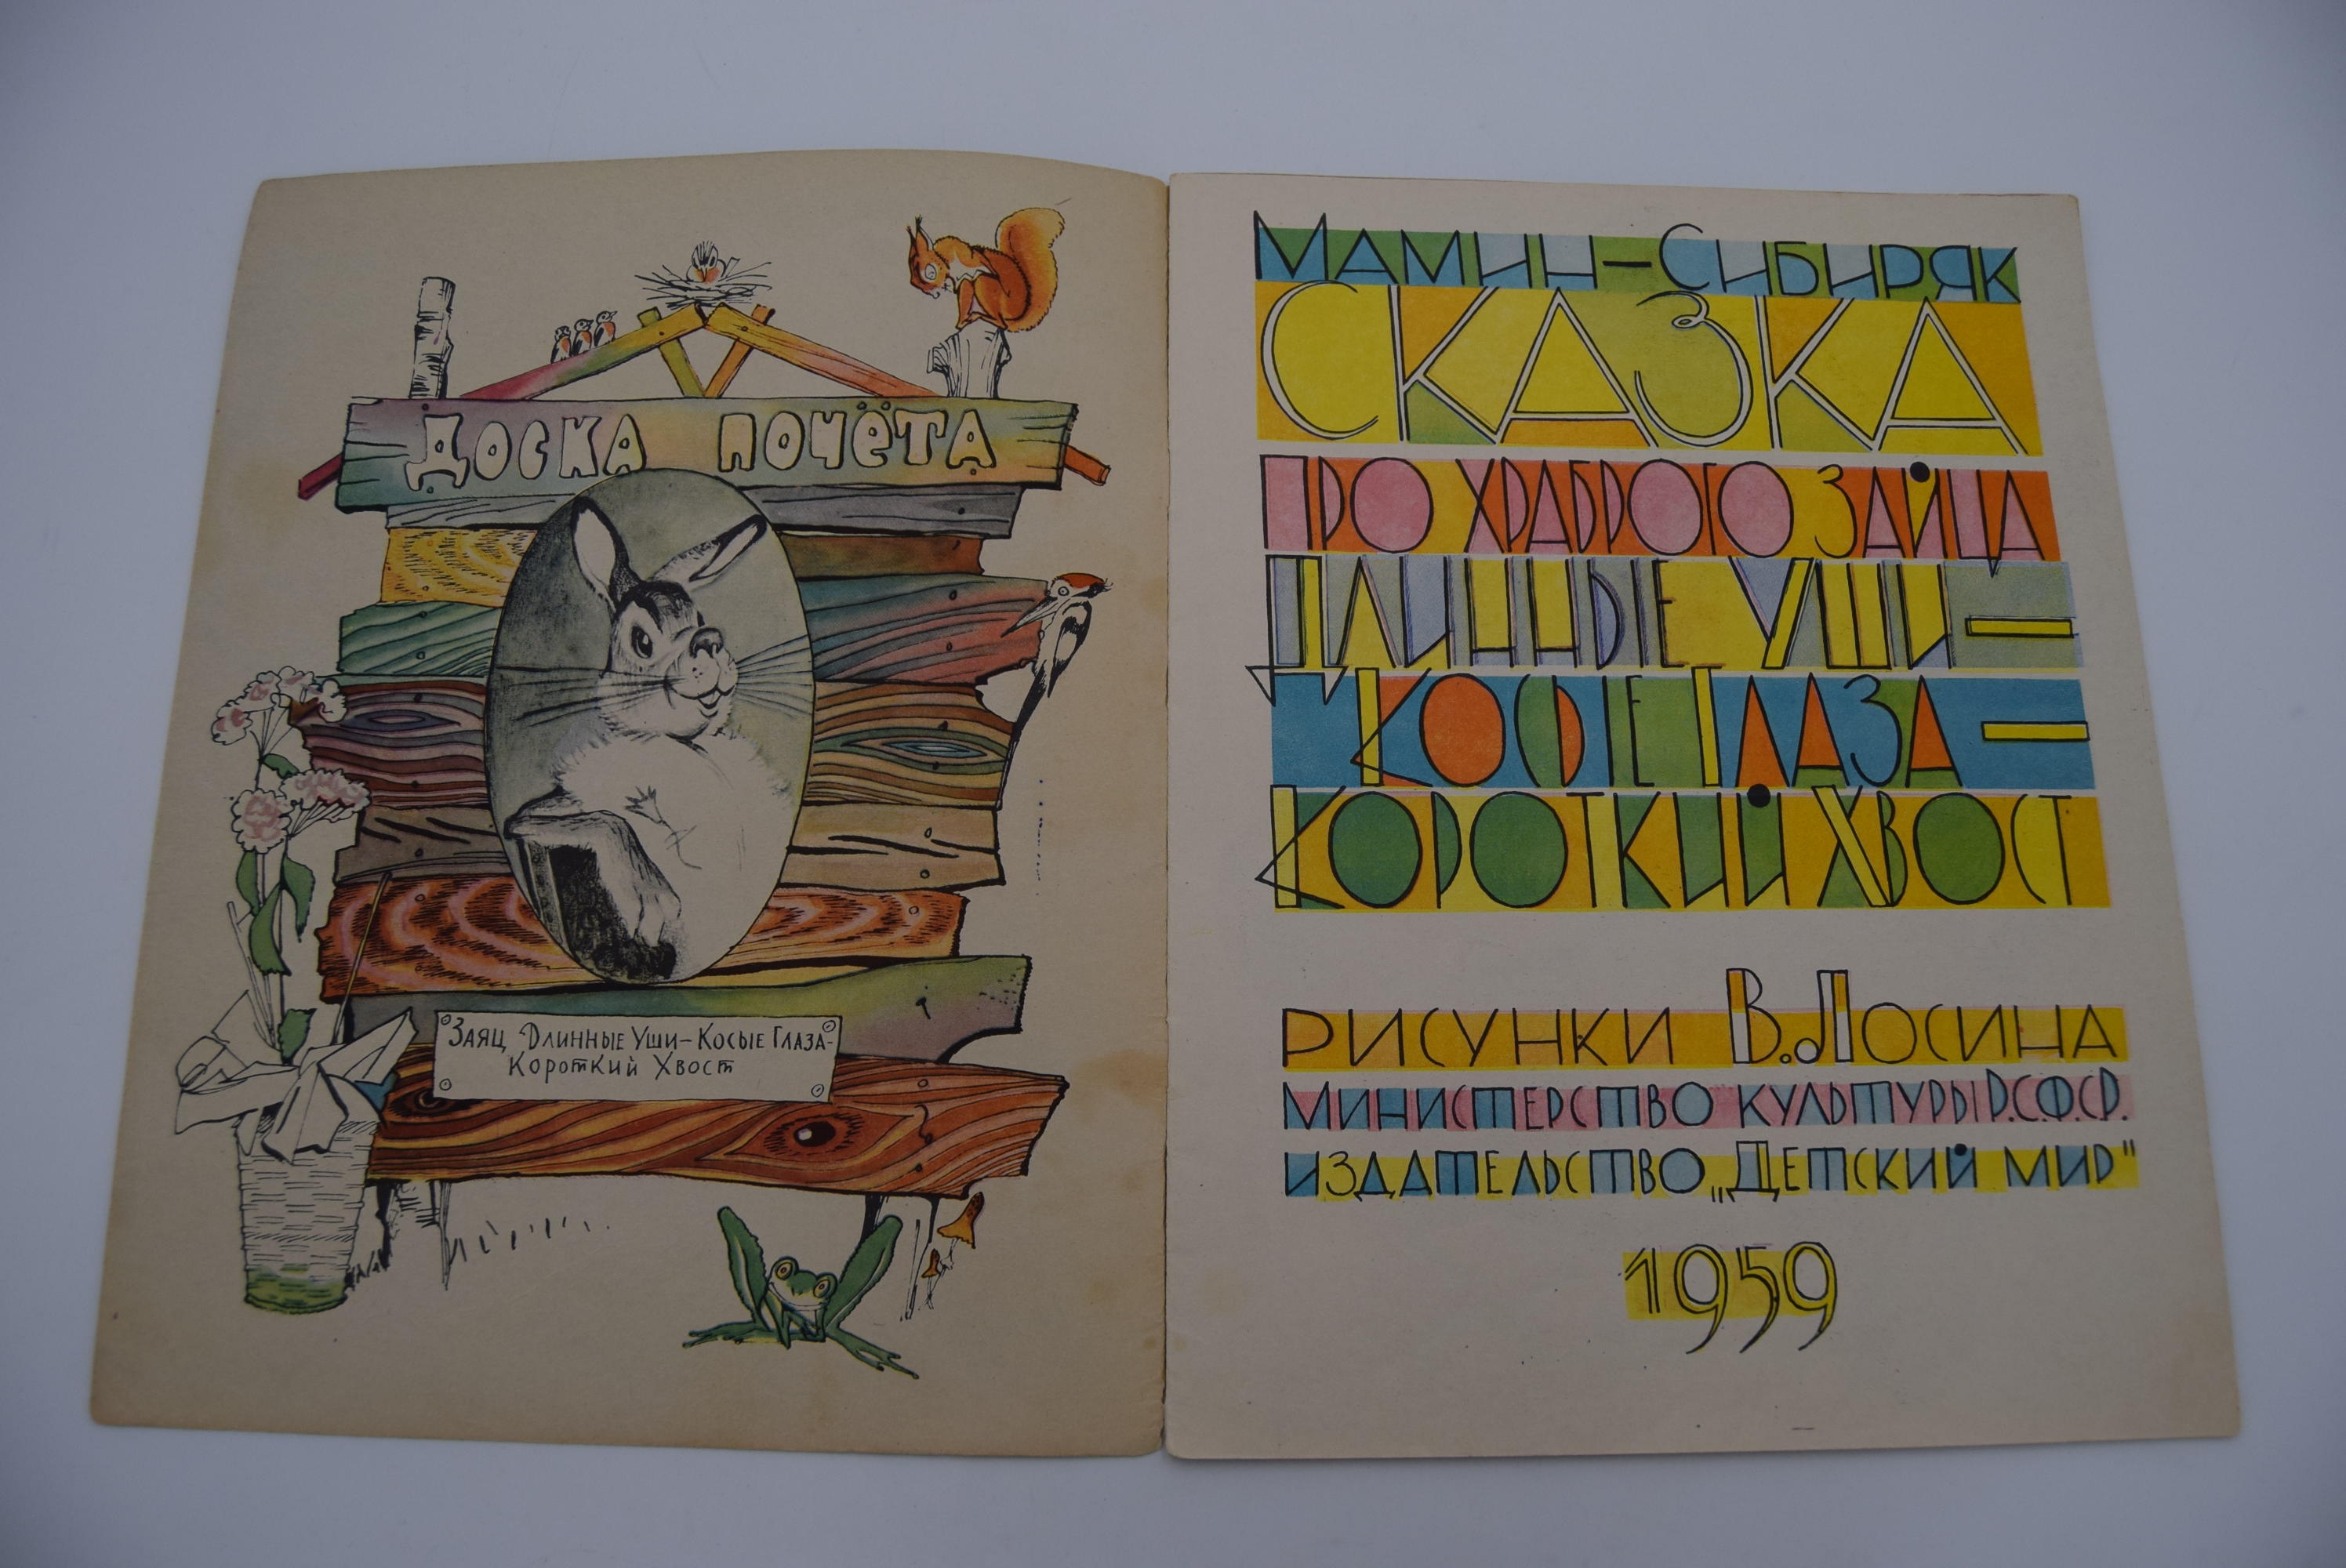 ДОСКА ПОЧЁТА
Заяц Длинные Уши-Косые Глаза-
Короткий Хвост
Мамин-Сибиряк
СКАЗКА
ПРО ХРАБРОГО ЗАЙЦА
ДЛИННЫЕ УШИ-
КОСЫЕ ГЛАЗА-
КОРОТКИЙ ХВОСТ
РИСУНКИ В. ЛОСИНА
МИНИСТЕРСТВО КУЛЬТУРЫ Р.С.Ф.С.Р.
ИЗДАТЕЛЬСТВО „ДЕТСКИЙ МИР"
1959